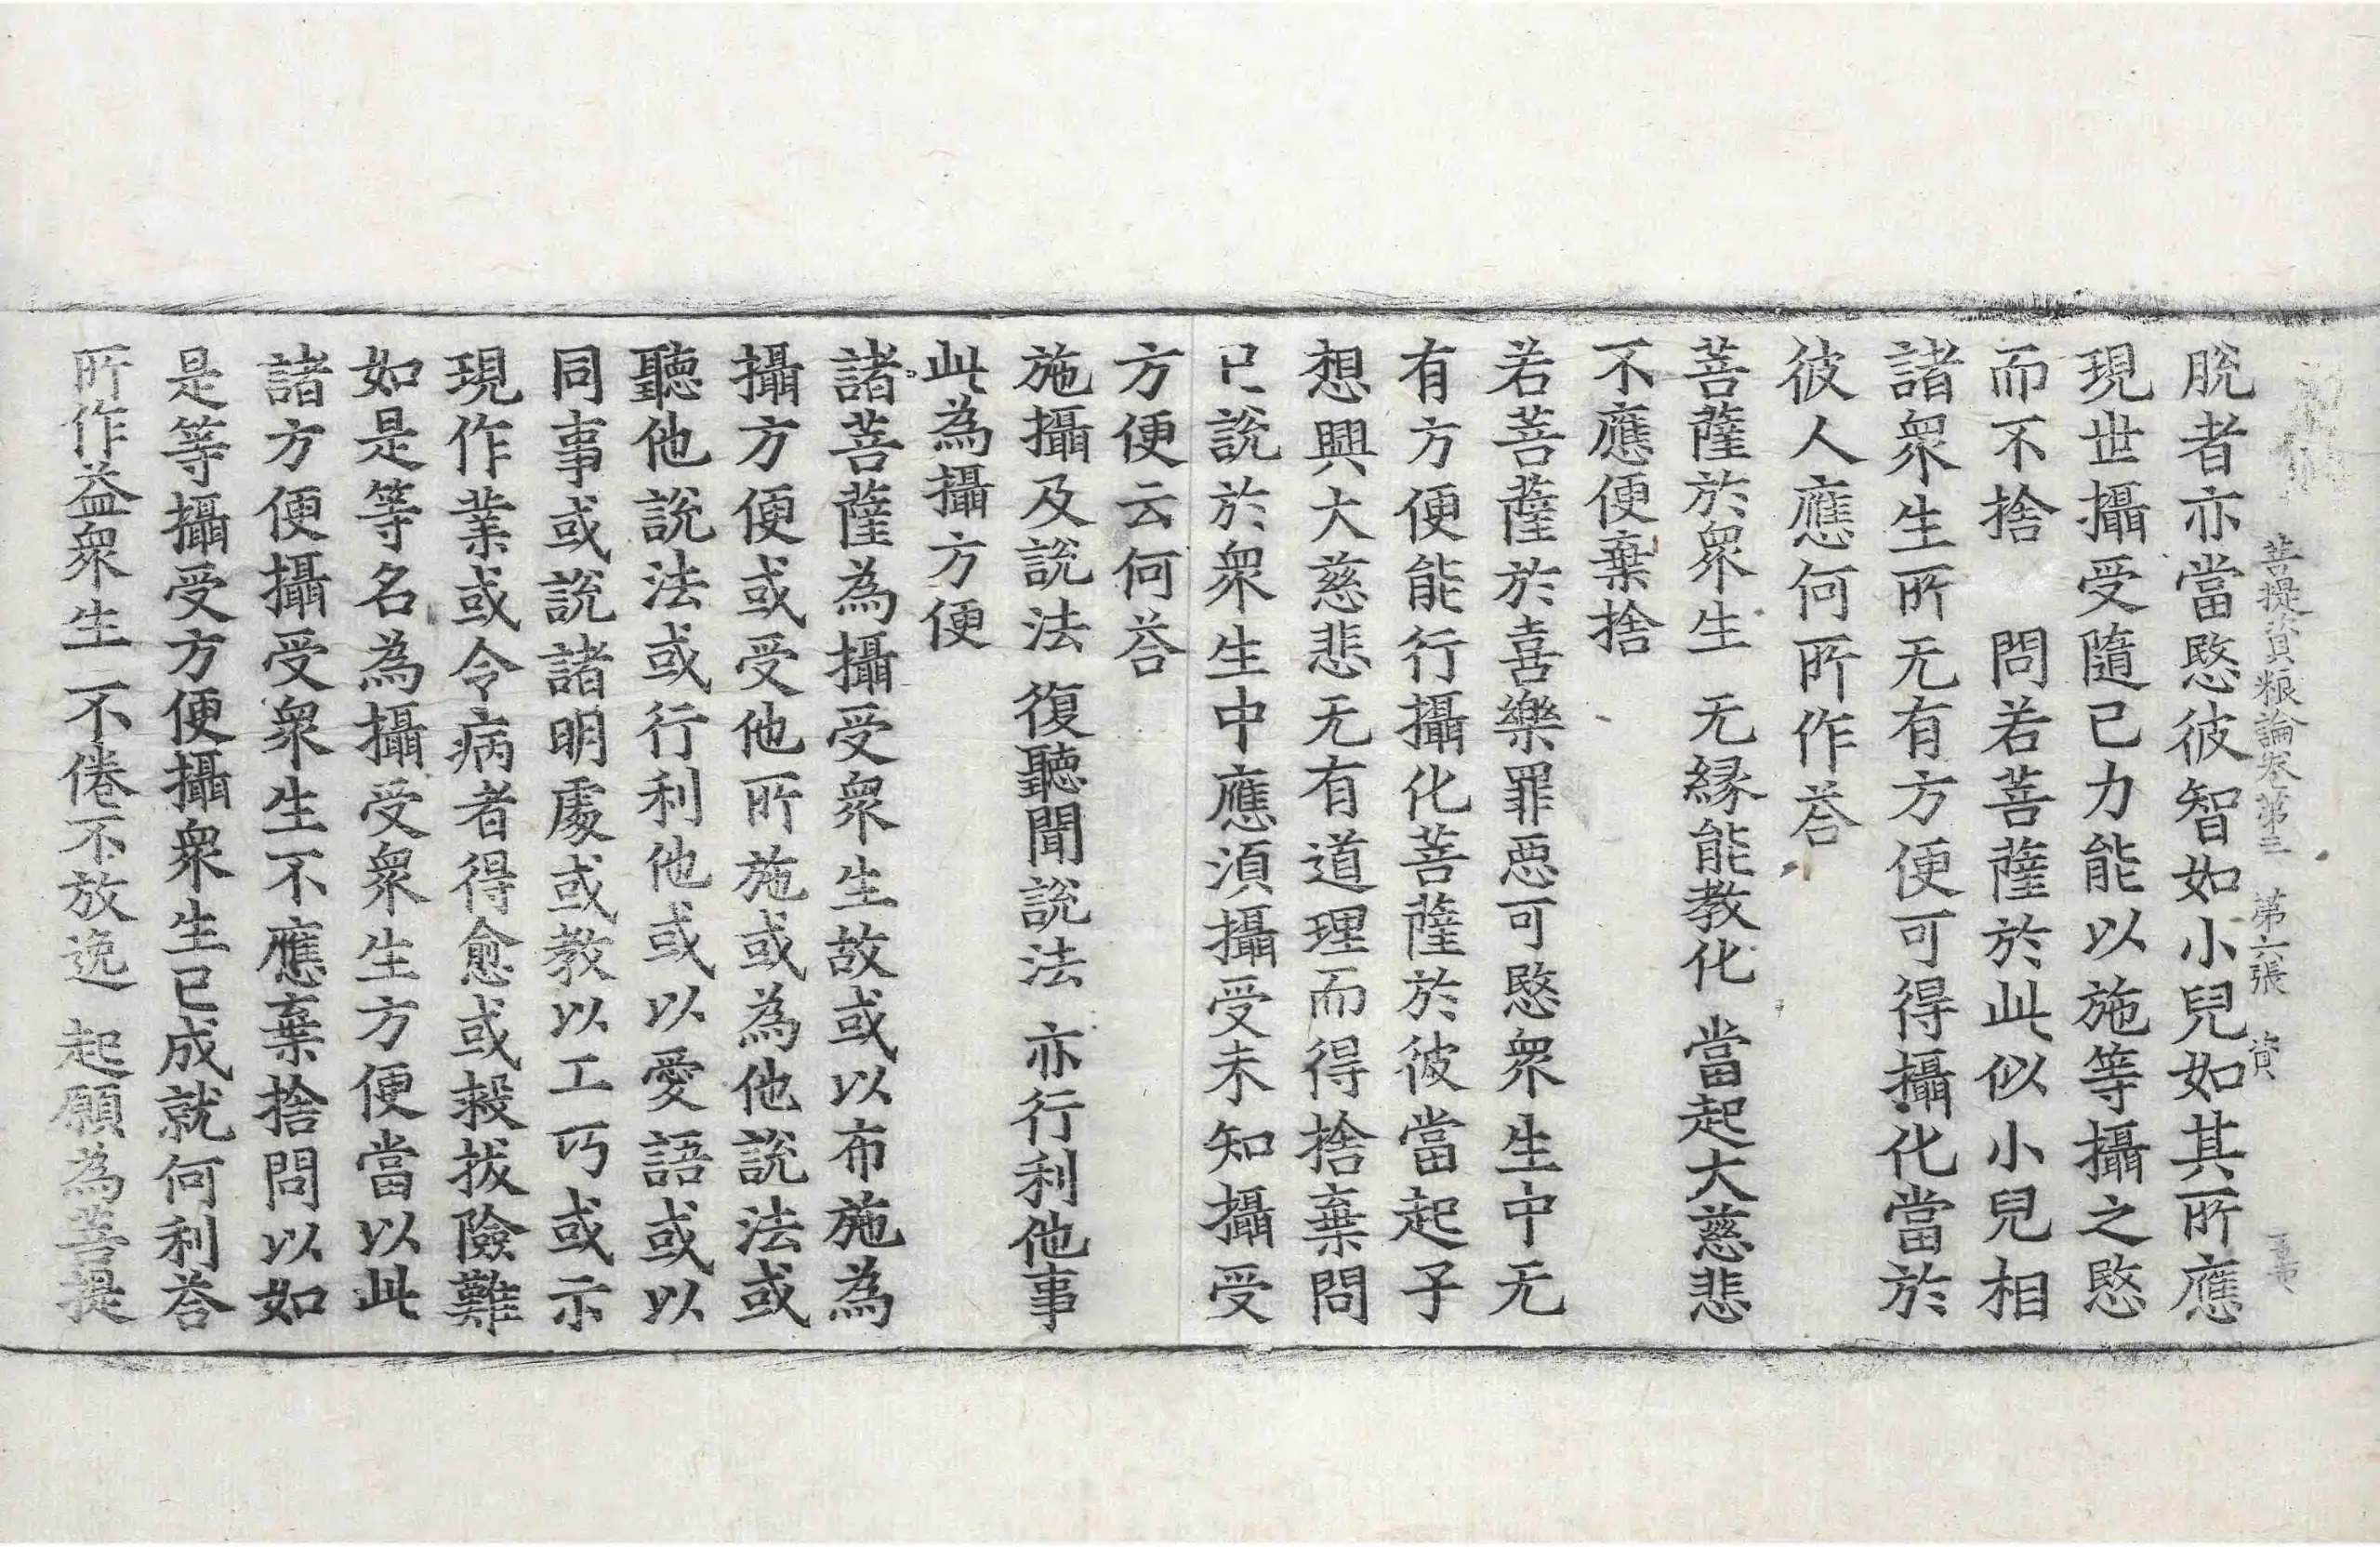 菩提資粮論卷第三 第六張 資
脫者亦當愍彼智如小兒如其所應
現世攝受隨己力能以施等攝之愍
而不捨 問若菩薩於此似小兒相
諸衆生所无有方便可得攝化當於
彼人應何所作荅
菩薩於衆生 无緣能教化 當起大慈悲
不應便棄捨
若菩薩於喜樂罪惡可愍衆生中无
有方便能行攝化菩薩於彼當起子
想興大慈悲无有道理而得捨棄問
已說於衆生中應須攝受未知攝受
方便云何荅
施攝及說法 復聽聞說法 亦行利他事
此為攝方便
諸菩薩為攝受衆生故或以布施為
攝方便或受他所施或為他說法或
聽他說法或行利他或以愛語或以
同事或說諸明處或教以工巧或示
現作業或令病者得愈或救拔險難
如是等名為攝受衆生方便當以此
諸方便攝受衆生不應棄捨問以如
是等攝受方便攝衆生已成就何利荅
所作益衆生 不倦不放逸 起願為菩提